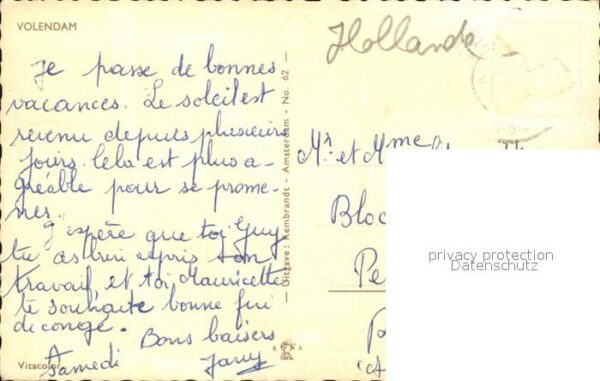 VOLENDAM
Hollande
Je passe de bonnes
vacances. Le soleil est
revenu depuis plusieurs
jours. Cela est plus a-
gréable pour se prome-
ner.
J'espère que toi Guy
tu as bien repris ton
travail, et toi Mauricette
te souhaite bonne fin
de congé.
Bons baisers
Samedi
Vitacolor
Uitgave: Rembrandt - Amsterdam - No. 62
Mr et Mme
Bloc
Pe
privacy protection
Datenschutz